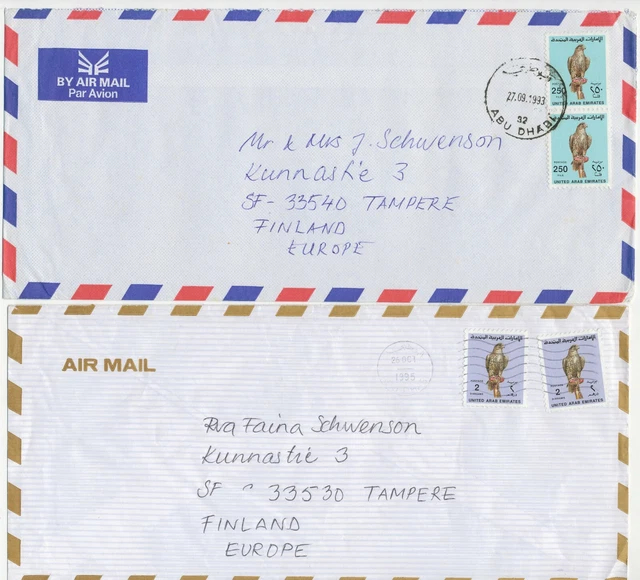 BY AIR MAIL
Par Avion
الإمارات العربية المتحدة
250 ٢٥٠
UNITED ARAB EMIRATES
الإمارات العربية المتحدة
250 ٢٥٠
UNITED ARAB EMIRATES
27.09.1993
32
ABU DHABI
Mr & Mrs J. Schwenson
Kunnastie 3
SF - 33540 TAMPERE
FINLAND
EUROPE
AIR MAIL
1995
الإمارات العربية المتحدة
2 ٢
UNITED ARAB EMIRATES
الإمارات العربية المتحدة
2 ٢
UNITED ARAB EMIRATES
Rva Faina Schwenson
Kunnastie 3
SF - 33530 TAMPERE
FINLAND
EUROPE